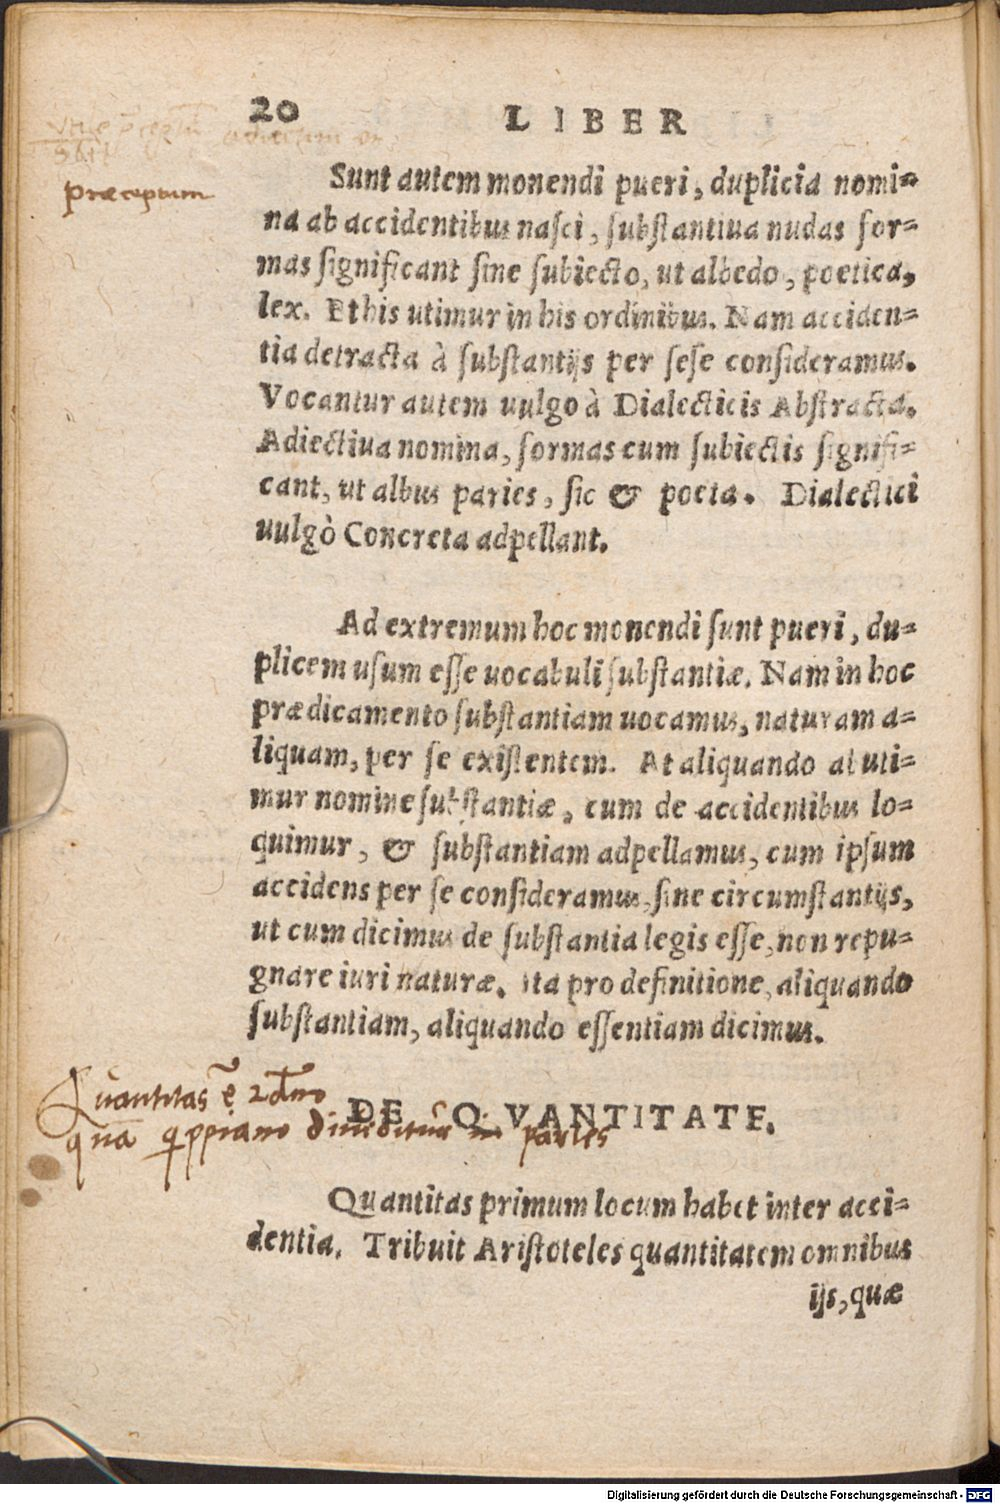 20 LIBER
præceptum
Sunt autem monendi pueri, duplicia nomi-
na ab accidentibus nasci, substantiua nudas for-
mas significant sine subiecto, ut albedo, poetica,
lex. Et his utimur in his ordinibus. Nam acciden-
tia detracta à substantijs per sese consideramus.
Vocantur autem uulgo à Dialecticis Abstracta.
Adiectiua nomina, formas cum subiectis signifi-
cant, ut albus paries, sic & poeta. Dialectici
uulgò Concreta adpellant.
Ad extremum hoc monendi sunt pueri, du-
plicem usum esse uocabuli substantiæ. Nam in hoc
prædicamento substantiam uocamus, naturam a-
liquam, per se existentem. At aliquando abuti-
mur nomine substantiæ, cum de accidentibus lo-
quimur, & substantiam adpellamus, cum ipsum
accidens per se consideramus, sine circumstantijs,
ut cum dicimus de substantia legis esse, non repu-
gnare iuri naturæ. Ita pro definitione, aliquando
substantiam, aliquando essentiam dicimus.
Quantitas ē
DE QVANTITATE.
quā diuiditur in partes
Quantitas primum locum habet inter acci-
dentia. Tribuit Aristoteles quantitatem omnibus
ijs, quæ
Digitalisierung gefördert durch die Deutsche Forschungsgemeinschaft - DFG